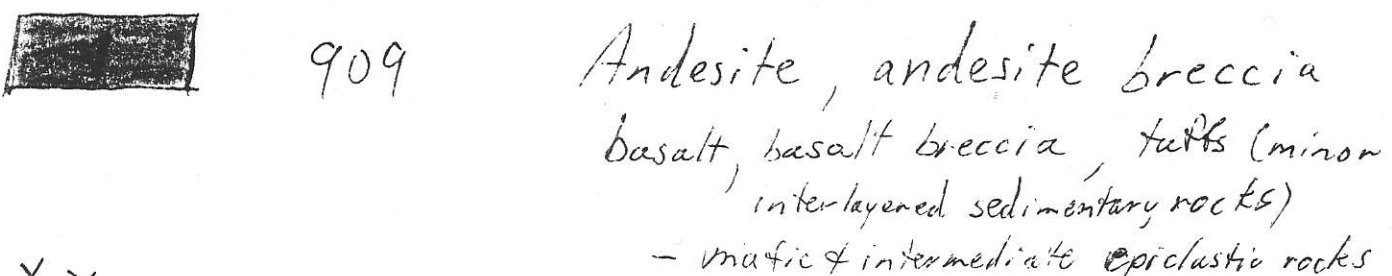 909 Andesite, andesite breccia
basalt, basalt breccia, tuffs (minor
interlayered sedimentary rocks)
- mafic & intermediate epiclastic rocks